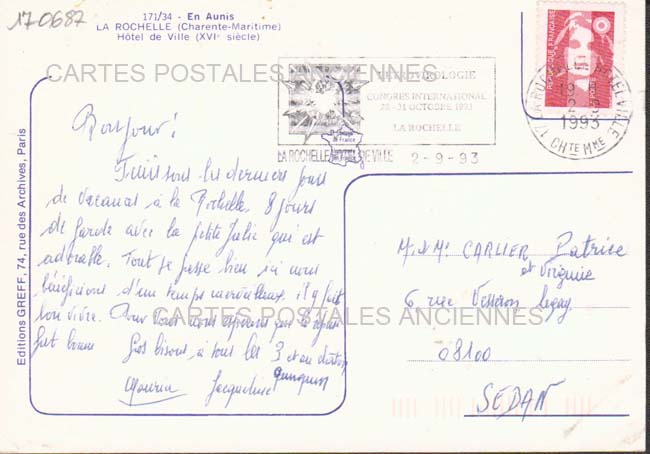 170687
171/34 - En Aunis
LA ROCHELLE (Charente-Maritime)
Hôtel de Ville (XVIe siècle)
CARTES POSTALES ANCIENNES
RETROVIROLOGIE
CONGRES INTERNATIONAL
28-31 OCTOBRE 1993
LA ROCHELLE
LA ROCHELLE HOTEL DE VILLE 2-9-93
17 LA ROCHELLE HOTEL VILLE
1993
CHTE MME
Editions GREFF, 74, rue des Archives, Paris
Bonjour!
sont les derniers jours
de vacances à la Rochelle. 8 jours
de garde avec la petite Julie qui est
adorable. Tout se passe bien ici nous
bénéficions d'un temps merveilleux. il y fait
bon vivre. Pour vous nous espérons que le séjour
fut bonne Gros bisous à tous les 3 et au
Jacqueline
M. & Me CARLIER Patrice
et Virginie
6, rue Vesseron
08100
SEDAN
CARTES POSTALES ANCIENNES